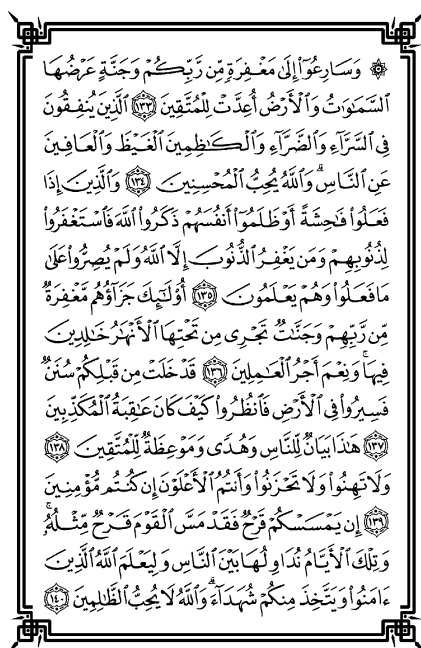 ۞ وَسَارِعُوٓا۟ إِلَىٰ مَغْفِرَةٍ مِّن رَّبِّكُمْ وَجَنَّةٍ عَرْضُهَا
ٱلسَّمَٰوَٰتُ وَٱلْأَرْضُ أُعِدَّتْ لِلْمُتَّقِينَ ١٣٣ ٱلَّذِينَ يُنفِقُونَ
فِى ٱلسَّرَّآءِ وَٱلضَّرَّآءِ وَٱلْكَٰظِمِينَ ٱلْغَيْظَ وَٱلْعَافِينَ
عَنِ ٱلنَّاسِ ۗ وَٱللَّهُ يُحِبُّ ٱلْمُحْسِنِينَ ١٣٤ وَٱلَّذِينَ إِذَا
فَعَلُوا۟ فَٰحِشَةً أَوْ ظَلَمُوٓا۟ أَنفُسَهُمْ ذَكَرُوا۟ ٱللَّهَ فَٱسْتَغْفَرُوا۟
لِذُنُوبِهِمْ وَمَن يَغْفِرُ ٱلذُّنُوبَ إِلَّا ٱللَّهُ وَلَمْ يُصِرُّوا۟ عَلَىٰ
مَا فَعَلُوا۟ وَهُمْ يَعْلَمُونَ ١٣٥ أُو۟لَٰٓئِكَ جَزَآؤُهُم مَّغْفِرَةٌ
مِّن رَّبِّهِمْ وَجَنَّٰتٌ تَجْرِى مِن تَحْتِهَا ٱلْأَنْهَٰرُ خَٰلِدِينَ
فِيهَا ۚ وَنِعْمَ أَجْرُ ٱلْعَٰمِلِينَ ١٣٦ قَدْ خَلَتْ مِن قَبْلِكُمْ سُنَنٌ
فَسِيرُوا۟ فِى ٱلْأَرْضِ فَٱنظُرُوا۟ كَيْفَ كَانَ عَٰقِبَةُ ٱلْمُكَذِّبِينَ
١٣٧ هَٰذَا بَيَانٌ لِّلنَّاسِ وَهُدًى وَمَوْعِظَةٌ لِّلْمُتَّقِينَ ١٣٨
وَلَا تَهِنُوا۟ وَلَا تَحْزَنُوا۟ وَأَنتُمُ ٱلْأَعْلَوْنَ إِن كُنتُم مُّؤْمِنِينَ
١٣٩ إِن يَمْسَسْكُمْ قَرْحٌ فَقَدْ مَسَّ ٱلْقَوْمَ قَرْحٌ مِّثْلُهُۥ ۚ
وَتِلْكَ ٱلْأَيَّامُ نُدَاوِلُهَا بَيْنَ ٱلنَّاسِ وَلِيَعْلَمَ ٱللَّهُ ٱلَّذِينَ
ءَامَنُوا۟ وَيَتَّخِذَ مِنكُمْ شُهَدَآءَ ۗ وَٱللَّهُ لَا يُحِبُّ ٱلظَّٰلِمِينَ ١٤٠